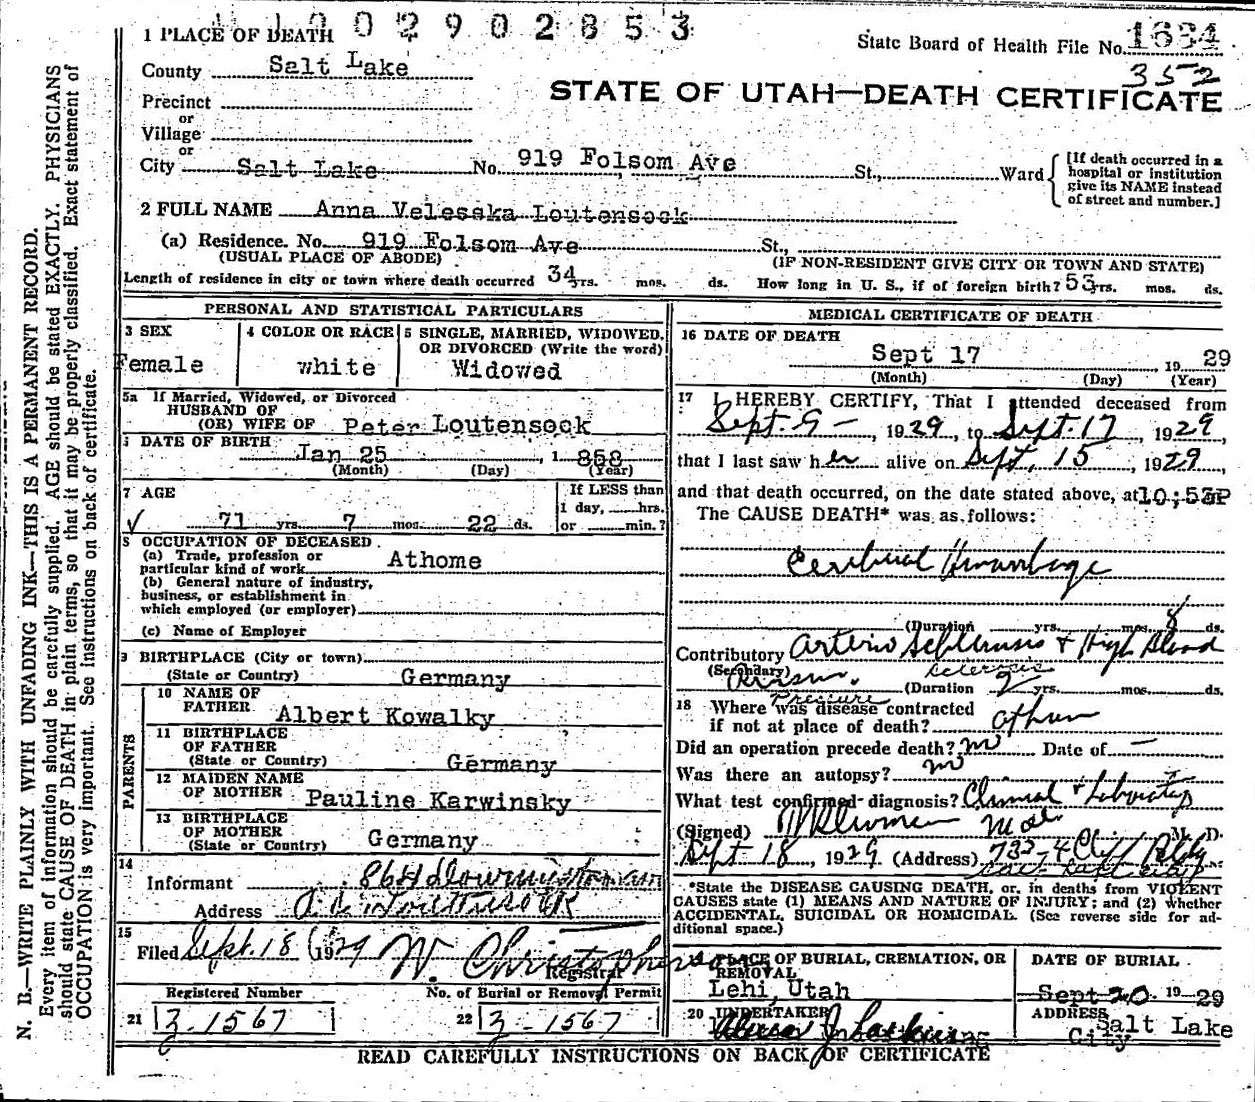 1 0 0 2 9 0 2 8 5 3
1 PLACE OF DEATH
State Board of Health File No. 1634
352
County Salt Lake
STATE OF UTAH—DEATH CERTIFICATE
Precinct
or
Village
or
City Salt Lake No. 919 Folsom Ave St., Ward
[If death occurred in a
hospital or institution
give its NAME instead
of street and number.]
2 FULL NAME Anna Velesska Loutensock
(a) Residence. No. 919 Folsom Ave St.,
(USUAL PLACE OF ABODE) (IF NON-RESIDENT GIVE CITY OR TOWN AND STATE)
Length of residence in city or town where death occurred 34 yrs. mos. ds. How long in U. S., if of foreign birth? 53 yrs. mos. ds.
PERSONAL AND STATISTICAL PARTICULARS
3 SEX
Female
4 COLOR OR RACE
white
5 SINGLE, MARRIED, WIDOWED,
OR DIVORCED (Write the word)
Widowed
5a If Married, Widowed, or Divorced
HUSBAND OF
(OR) WIFE OF Peter Loutensock
DATE OF BIRTH
Jan 25, 1858
(Month) (Day) (Year)
7 AGE
71 yrs. 7 mos. 22 ds.
If LESS than
1 day, hrs.
or min.?
8 OCCUPATION OF DECEASED
(a) Trade, profession or
particular kind of work Athome
(b) General nature of industry,
business, or establishment in
which employed (or employer)
(c) Name of Employer
9 BIRTHPLACE (City or town)
(State or Country) Germany
PARENTS
10 NAME OF
FATHER Albert Kowalky
11 BIRTHPLACE
OF FATHER
(State or Country) Germany
12 MAIDEN NAME
OF MOTHER Pauline Karwinsky
13 BIRTHPLACE
OF MOTHER
(State or Country) Germany
14
Informant
Address
15
Filed Sept. 18 1929 W. Christopherson
Registrar
Registered Number
21 3-1567
No. of Burial or Removal Permit
22 3-1567
MEDICAL CERTIFICATE OF DEATH
16 DATE OF DEATH
Sept 17 1929
(Month) (Day) (Year)
17 I HEREBY CERTIFY, That I attended deceased from
Sept. 9 - , 1929, to Sept. 17, 1929
that I last saw her alive on Sept, 15, 1929,
and that death occurred, on the date stated above, at 10;53P
The CAUSE DEATH* was as follows:
Cerebral Hemorrhage
(Duration yrs. mos. 8 ds.
Contributory Arterio Schlerosis & High Blood
(Secondary) sclerosis
Pressure
(Duration 2 yrs. mos. ds.
18 Where was disease contracted
if not at place of death? at home
Did an operation precede death? no Date of —
Was there an autopsy? no
What test confirmed diagnosis? Clinical & Laboratory
(Signed) M. D.
Sept 18, 1929 (Address) 732-4 Cliff Bldg.
*State the DISEASE CAUSING DEATH, or, in deaths from VIOLENT
CAUSES state (1) MEANS AND NATURE OF INJURY; and (2) whether
ACCIDENTAL, SUICIDAL OR HOMICIDAL. (See reverse side for ad-
ditional space.)
PLACE OF BURIAL, CREMATION, OR
REMOVAL
Lehi, Utah
DATE OF BURIAL
Sept 20. 1929
20 UNDERTAKER
ADDRESS
Salt Lake
City
READ CAREFULLY INSTRUCTIONS ON BACK OF CERTIFICATE
N. B.—WRITE PLAINLY WITH UNFADING INK—THIS IS A PERMANENT RECORD.
Every item of information should be carefully supplied. AGE should be stated EXACTLY. PHYSICIANS
should state CAUSE OF DEATH in plain terms, so that it may be properly classified. Exact statement of
OCCUPATION is very important. See instructions on back of certificate.